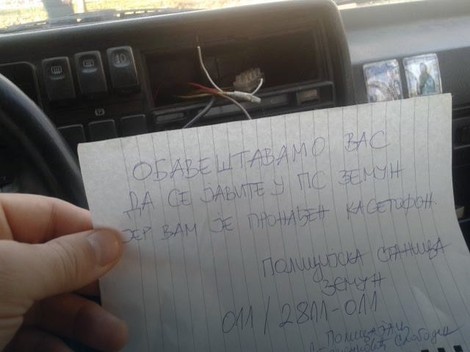 ОБАВЕШТАВАМО ВАС
ДА СЕ ЈАВИТЕ У ПС ЗЕМУН
ЈЕР ВАМ ЈЕ ПРОНАЂЕН КАСЕТОФОН
ПОЛИЦИЈСКА СТАНИЦА
ЗЕМУН
011/2811-011
ПОЛИЦАЈАЦ